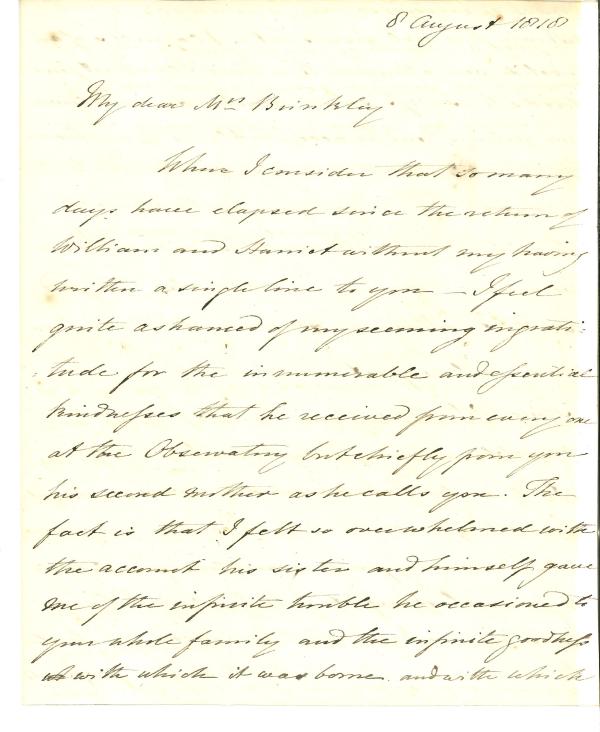 8 August 1818
My dear Mrs Brinkley
When I consider that so many
days have elapsed since the return of
William and Harriet without my having
written a single line to you — I feel
quite ashamed of my seeming ingrati:
:tude for the innumerable and essential
kindnesses that he received from every one
at the Observatory but chiefly from you
his second mother as he calls you. The
fact is that I felt so overwhelmed with
the account his sister and himself gave
me of the infinite trouble he occasioned to
your whole family and the infinite goodness
with which it was borne and with which